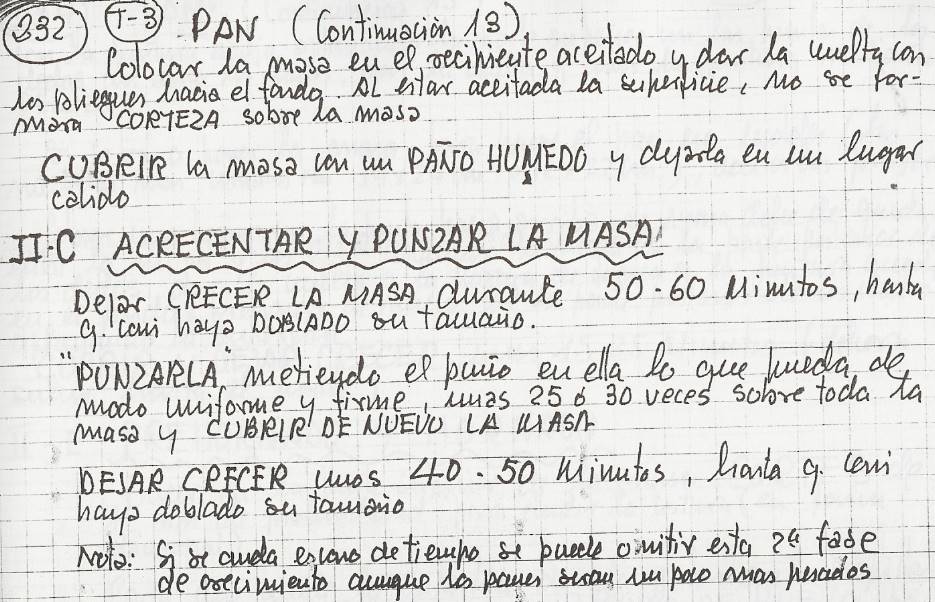 332 T-3 PAN (Continuación 13)
Colocar la masa en el recipiente aceitado y dar la vuelta con
los pliegues hacia el fondo. AL estar aceitada la superficie, no se for-
mara CORTEZA sobre la masa
CUBRIR la masa con un PAÑO HUMEDO y dejarla en un lugar
calido
II-C ACRECENTAR Y PUNZAR LA MASA
Dejar CRECER LA MASA durante 50-60 Minutos, hasta
q. casi haya DOBLADO su tamaño.
"PUNZARLA", metiendo el puño en ella lo que pueda, de
modo uniforme y firme, unas 25 ó 30 veces sobre toda la
masa y CUBRIR DE NUEVO LA MASA
DEJAR CRECER unos 40-50 Minutos, hasta q. casi
haya doblado su tamaño
Nota: Si se anda escaso de tiempo se puede omitir esta 2ª fase
de crecimiento aunque los panes seran un poco mas pesados